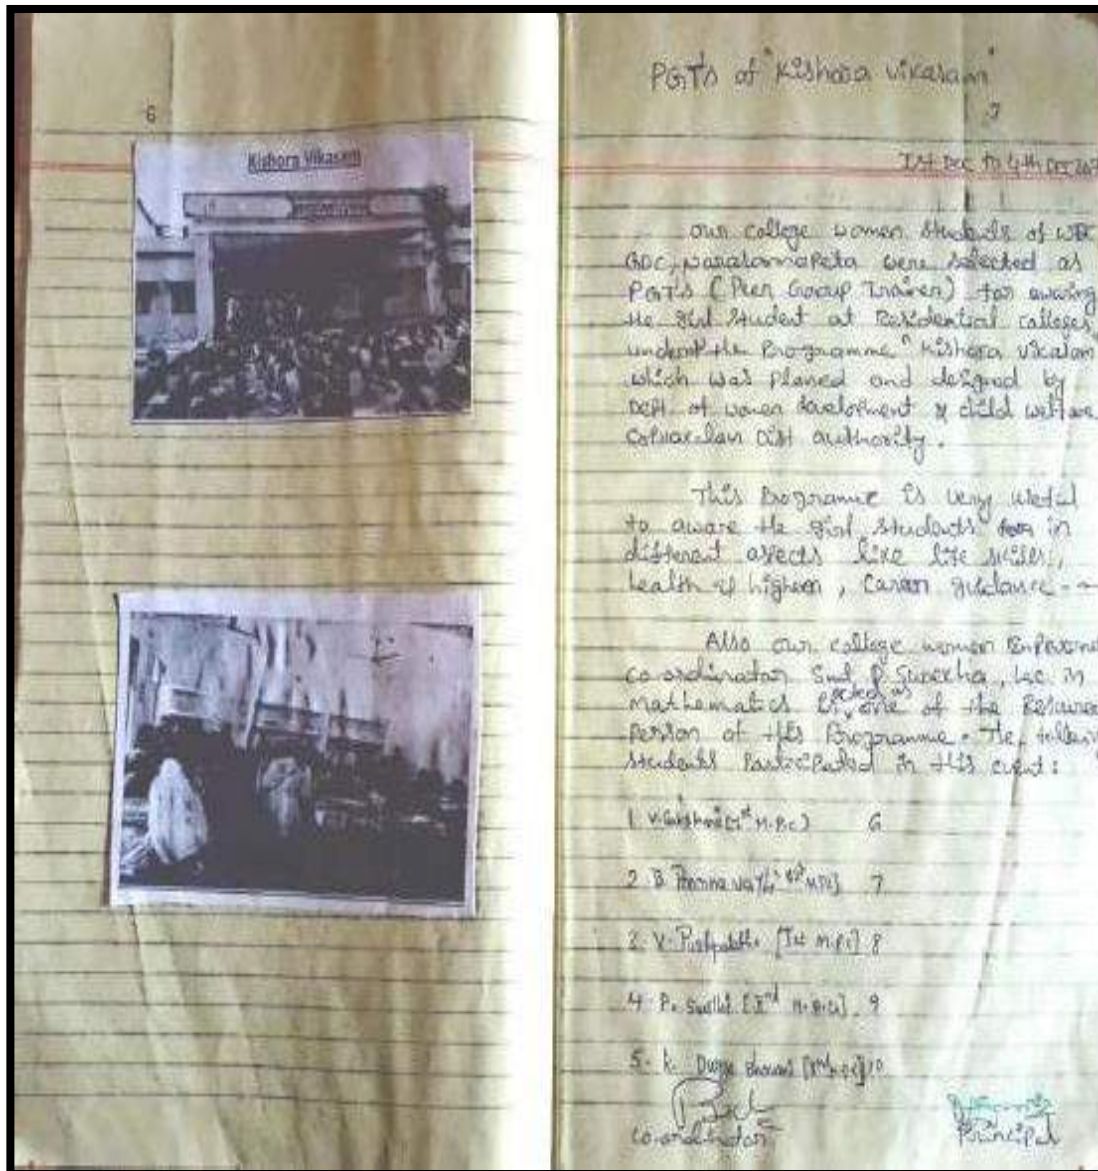 6
Kishora Vikasam
PGT's of "Kishora Vikasam"
7
1st Dec to 4th Dec
our college women students of WEC
GDC, were selected as
PGT's (Peer Group Trainer) for awaring
the girl student at Residential colleges,
under the Programme "Kishora Vikasam"
which was planed and designed by
Dept. of women development & child welfare
Dist authority.
This Programme is very useful
to aware the girl students in
different aspects like life skills,
health & higheen, Carier guidance
Also our college women
co-ordinator Smt. P. Surekha, Lec. in
mathematics acted as one of the Resource
Person of this Programme. The
students Participated in this event:
1. V. (1st M.P.C) 6
2. B. 7
3. V. Pushpalatha [Ist M.P.C] 8
4. P. [IInd M.P.C] 9
5. K. Durga Bhavani 10
Co-ordinator
Principal